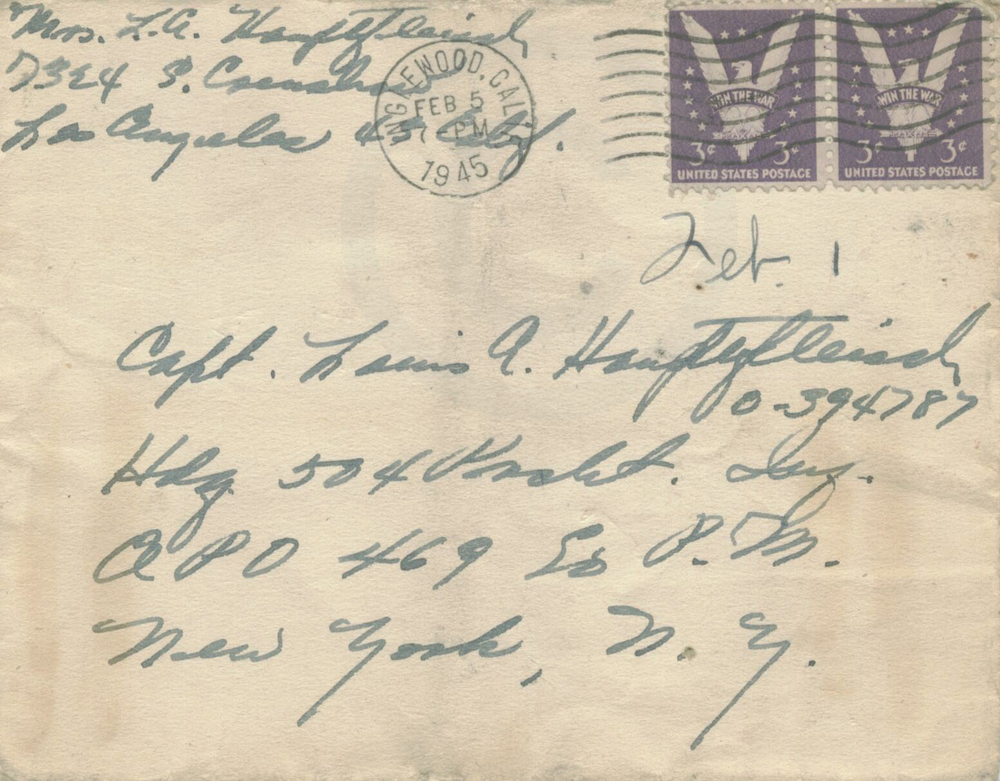 Mrs. L.A. Hauptfleisch
7324 S. Crenshaw
Los Angeles 43 Calif.
INGLEWOOD, CALIF.
FEB 5
7-PM
1945
WIN THE WAR
3¢ 3¢
UNITED STATES POSTAGE
WIN THE WAR
3¢ 3¢
UNITED STATES POSTAGE
Feb. 1
Capt. Louis A. Hauptfleisch
0-394787
Hdq. 504 Prcht. Inf.
APO 469 % P.M.
New York, N.Y.